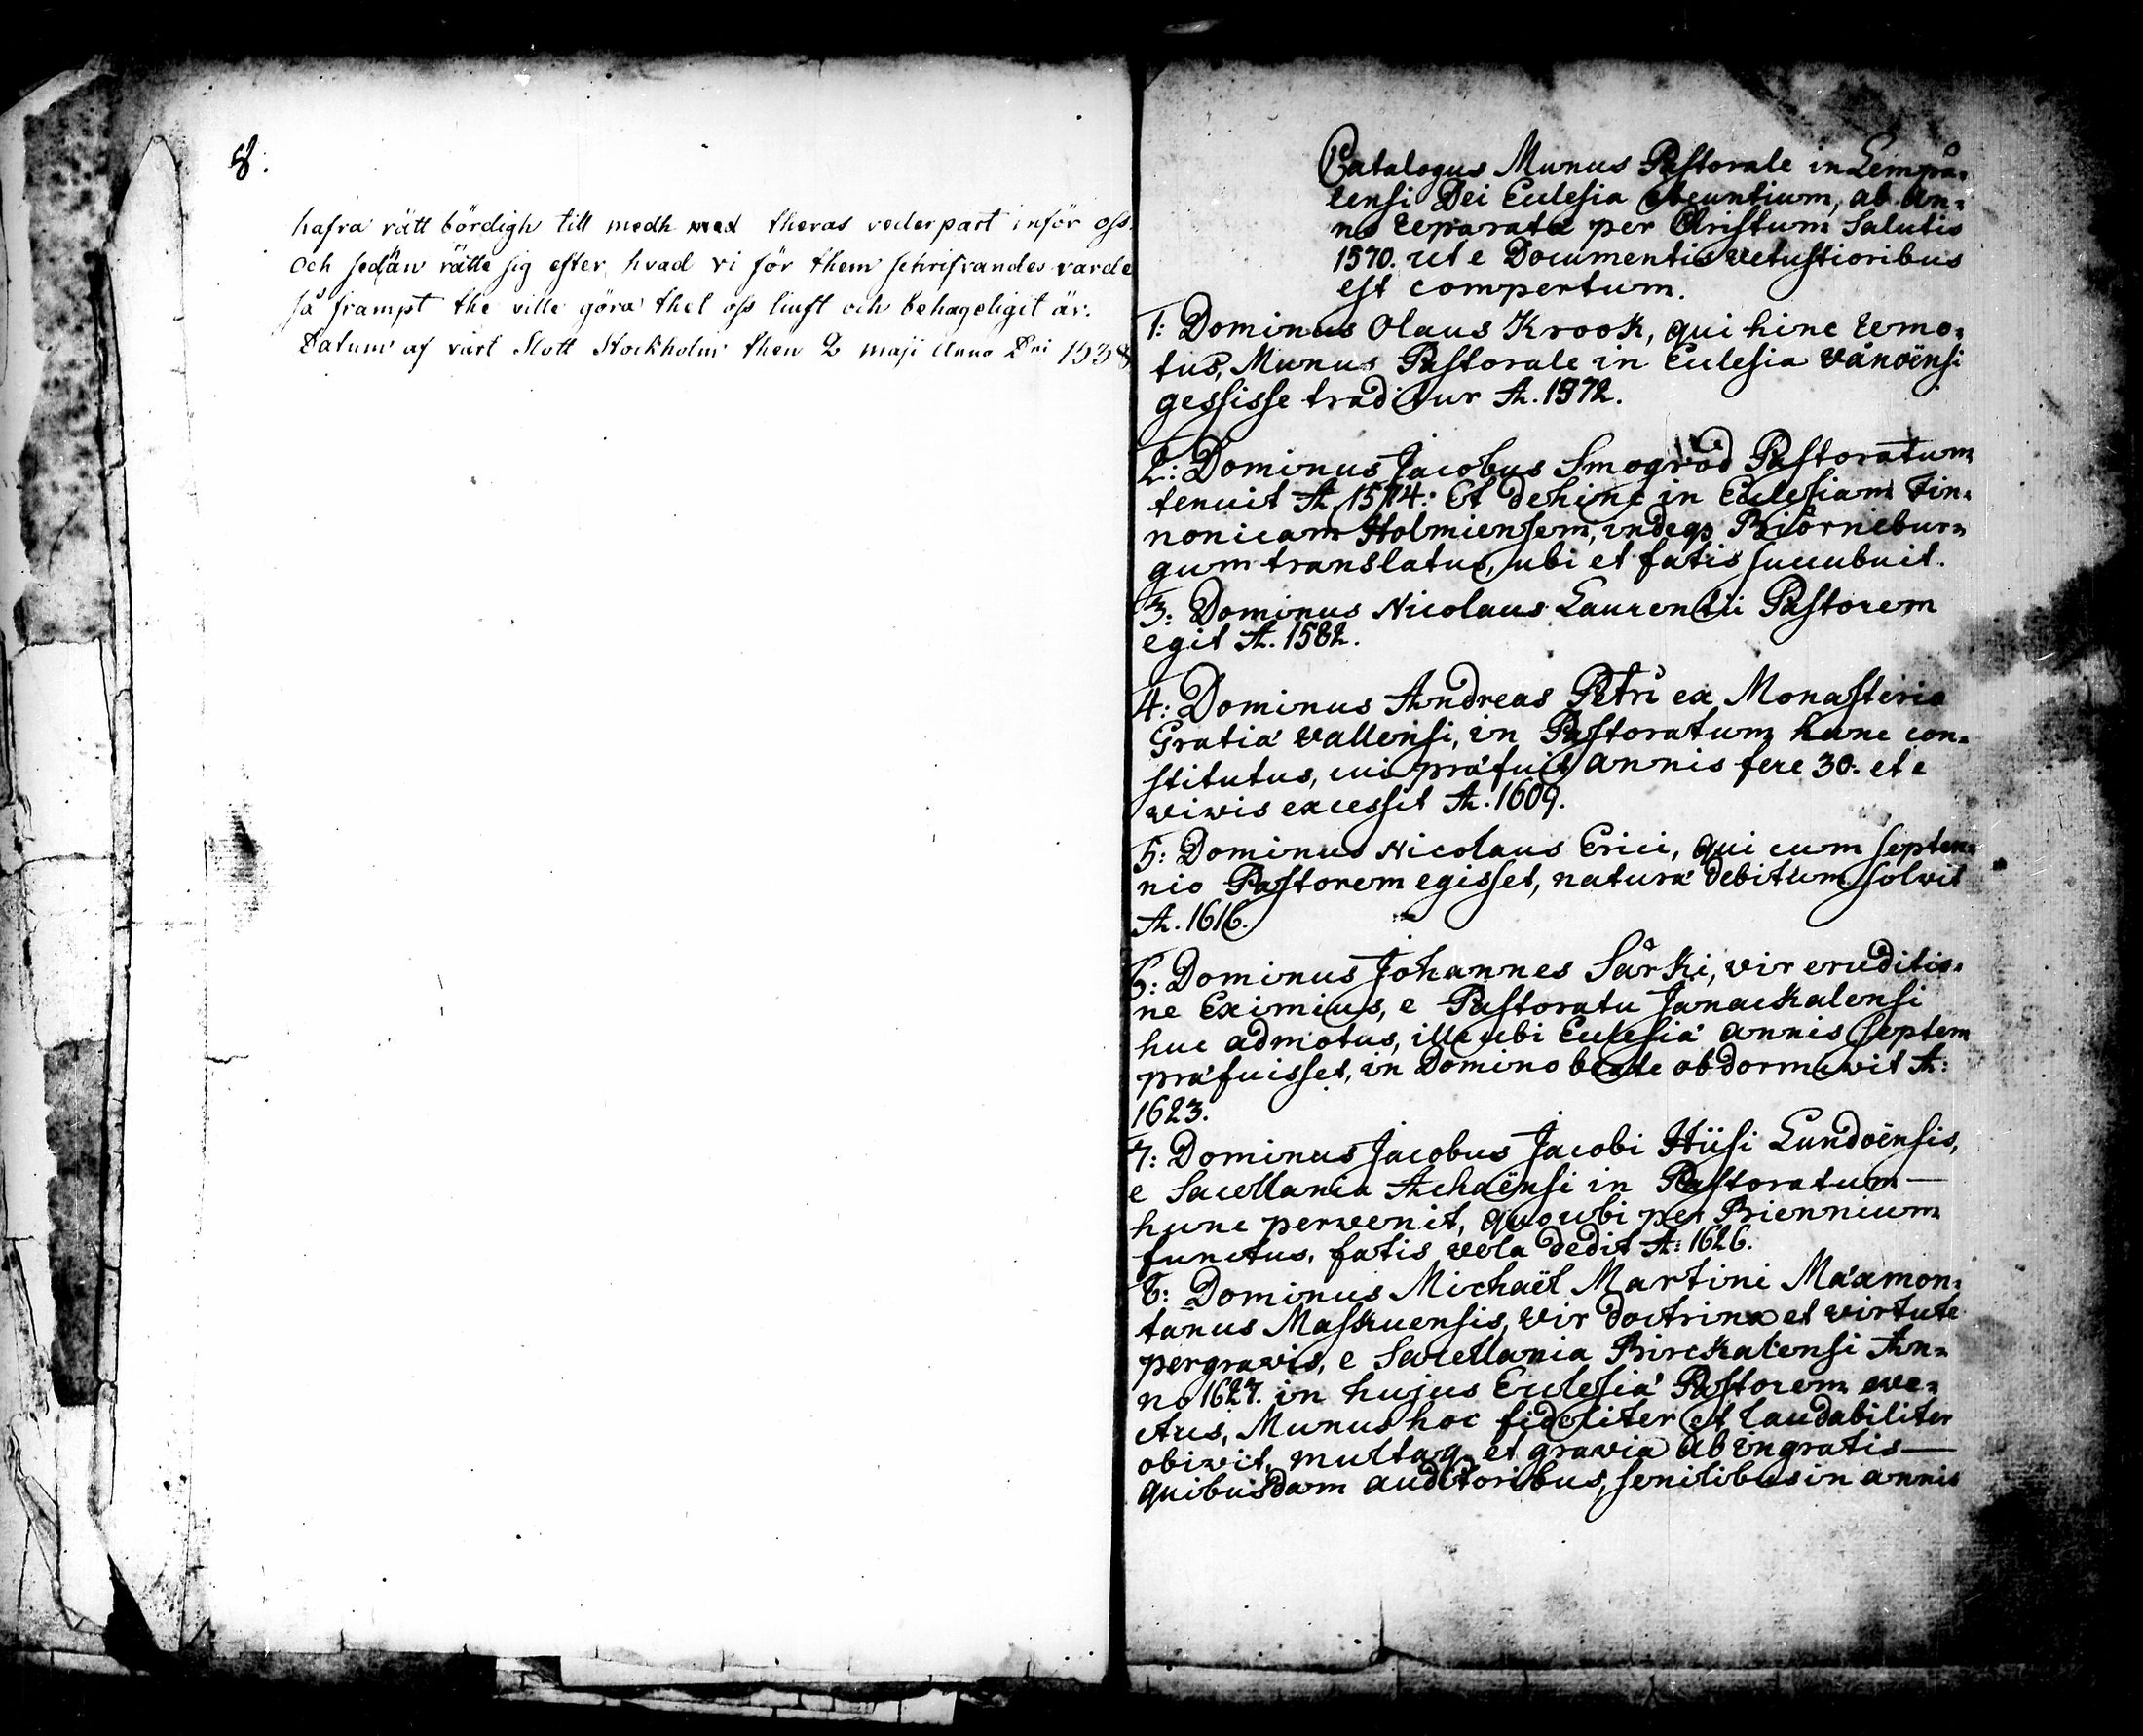 8.
hafra rätt bördigh till medh med theras vederpart inför oss.
och sedän rätte sig efter hvad vi för them schrifvandes varde
så frampt the ville göra thet oss liuft och behageligit är.
Datum af vårt Slott Stockholm then 2 maji Anno Dni 1538
Catalogus Munus Pastorale in Lempå-
lensi Dei Eclesia obeuntium, ab An-
no reparatæ per Christum Salutis
1570. ut e Documentis vetustioribus
est compertum.
1: Dominus Olaus Krook, qui hinc remo-
tus, Munus Pastorale in Eclesia Vånoënsi
gessisse traditur A. 1972.
2: Dominus Jacobus Smogrod Pastoratum
tenuit A. 1574: Et dehinc in Eclesiam Fin-
nonicam Holmiensem, indeqs Biörnebur-
gum translatus, ubi et fatis succubuit.
3: Dominus Nicolaus Laurentii Pastorem
egit A. 1582.
4: Dominus Andreas Petri ex Monasterio
Gratiá Vallensi, in Pastoratum hunc con-
stitutus, cui práfuit annis fere 30. et e
vivis excessit A. 1609.
5: Dominus Nicolaus Erici, qui cum septen-
nio Pastorem egisset, naturá debitum solvit
A. 1616.
6: Dominus Johannes Särki, vir eruditio-
ne Eximius, e Pastoratu Janackalensi
huc admotus, ille ubi Eclesiá annis septem
práfuisset, in Domino beate obdormivit A:
1623.
7: Dominus Jacobus Jacobi Hiisi Lundoënsis,
e Sacellania Achaënsi in Pastoratum—
hunc pervenit, quo ubi per Biennium
functus, fatis vela dedit A: 1626.
8: Dominus Michaël Martini Máxmon-
tanus Maskuensis, vir doctrina et virtute
pergravis, e Sacellania Birckalensi An-
no 1627. in hujus Eclesiá Pastorem eve-
ctus, Munus hoc fideliter et laudabiliter
obivit, multaq. et gravia ab ingratis—
quibusdam auditoribus, senilibus in annis